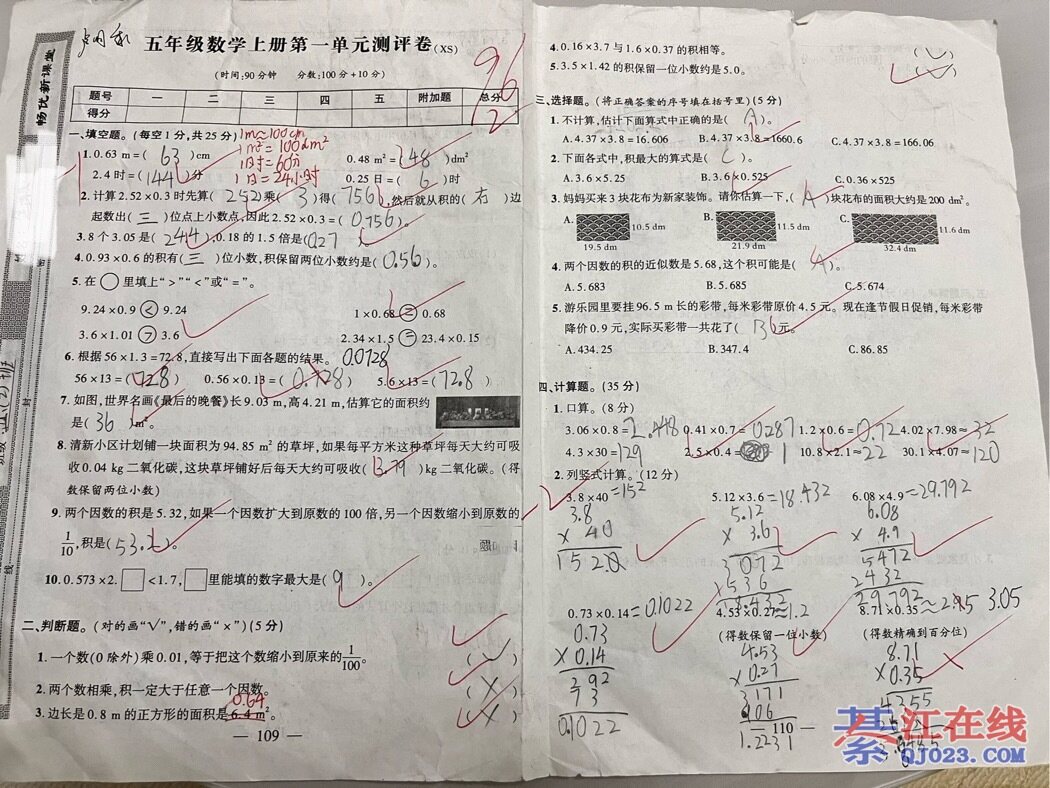 畅优新课堂
五年级数学上册第一单元测评卷(XS)
96
2
(时间:90分钟 分数:100分+10分)
题号 一 二 三 四 五 附加题 总分
得分
一、填空题。(每空1分,共25分)
1m≈100cm
1m²=100dm²
1时=60分
1日=24小时
1.0.63 m=(63)cm 0.48 m²=(48)dm²
2.4时=(144)分 0.25日=(6)时
2.计算2.52×0.3时先算(252)乘(3)得(756),然后就从积的(右)边
起数出(三)位点上小数点,因此2.52×0.3=(0.756)。
3.8个3.05是(24.4),0.18的1.5倍是(0.27)
4.0.93×0.6的积有(三)位小数,积保留两位小数约是(0.56)。
5.在○里填上“>”“<”或“=”。
9.24×0.9<9.24 1×0.68=0.68
3.6×1.01>3.6 2.34×1.5=23.4×0.15
6.根据56×1.3=72.8,直接写出下面各题的结果。 0.0728
56×13=(728) 0.56×0.13=(0.728) 5.6×13=(72.8)
7.如图,世界名画《最后的晚餐》长9.03 m,高4.21 m,估算它的面积约
是(36)m²。
8.清新小区计划铺一块面积为94.85 m²的草坪,如果每平方米这种草坪每天大约可吸
收0.04 kg二氧化碳,这块草坪铺好后每天大约可吸收(3.79)kg二氧化碳。(得
数保留两位小数)
9.两个因数的积是5.32,如果一个因数扩大到原数的100倍,另一个因数缩小到原数的
1/10,积是(53.2)。
10.0.573×2.□<1.7,□里能填的数字最大是(9)。
二、判断题。(对的画“√”,错的画“×”)(5分)
1.一个数(0除外)乘0.01,等于把这个数缩小到原来的1/100。 (√)
2.两个数相乘,积一定大于任意一个因数。 (×)
0.64
3.边长是0.8 m的正方形的面积是6.4 m²。 (×)
— 109 —
4.0.16×3.7与1.6×0.37的积相等。 (√)
5.3.5×1.42的积保留一位小数约是5.0。
三、选择题。(将正确答案的序号填在括号里)(5分)
1.不计算,估计下面算式中正确的是(A)。
A.4.37×3.8=16.606 B.4.37×3.8=1660.6 C.4.37×3.8=166.06
2.下面各式中,积最大的算式是(C)。
A.3.6×5.25 B.3.6×0.525 C.0.36×525
3.妈妈买来3块花布为新家装饰。请你估算一下,(A)块花布的面积大约是200 dm²。
A. 10.5 dm B. 11.5 dm C. 11.6 dm
19.5 dm 21.9 dm 32.4 dm
4.两个因数的积的近似数是5.68,这个积可能是(A)。
A.5.683 B.5.685 C.5.674
5.游乐园里要挂96.5 m长的彩带,每米彩带原价4.5元。现在逢节假日促销,每米彩带
降价0.9元,实际买彩带一共花了(B)元。
A.434.25 B.347.4 C.86.85
四、计算题。(35分)
1.口算。(8分)
3.06×0.8=2.448 0.41×0.7=0.287 1.2×0.6=0.72 4.02×7.98≈32
4.3×30=129 2.5×0.4=1 10.8×2.1≈22 30.1×4.07≈120
2.列竖式计算。(12分)
3.8×40=152 5.12×3.6=18.432 6.08×4.9=29.792
3.8 5.12 6.08
×40 ×3.6 ×4.9
152.0 3072 5472
1536 2432
18.432 29.792
0.73×0.14=0.1022 4.53×0.27≈1.2 8.71×0.35≈ 3.05
(得数保留一位小数) (得数精确到百分位)
0.73 4.53 8.71
×0.14 ×0.27 ×0.35
292 3171 4355
73 906
0.1022 1.2231
— 110 —
綦江在线
QJ023.COM